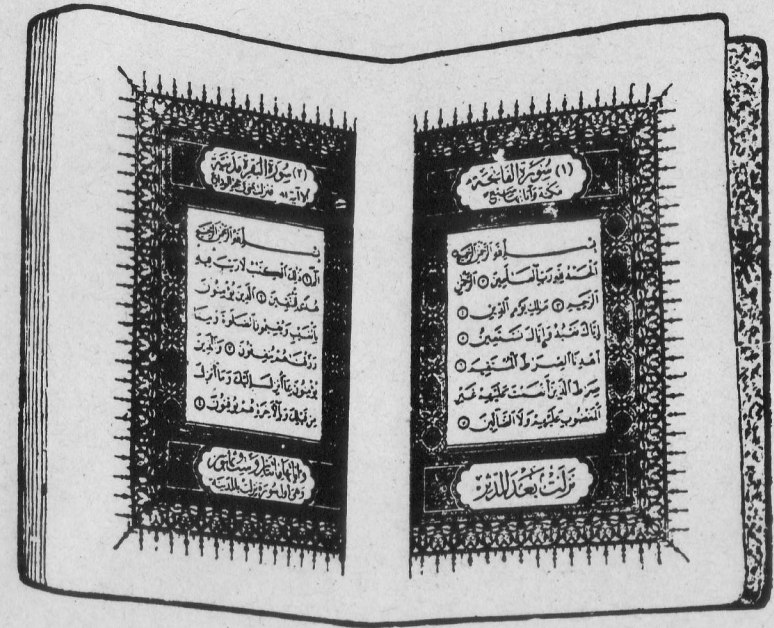 (١) سُورَةُ الفَاتِحَة
مكية وآياتها سبع
بِسْمِ اللَّهِ الرَّحْمَٰنِ الرَّحِيمِ
الْحَمْدُ لِلَّهِ رَبِّ الْعَالَمِينَ ٢ الرَّحْمَٰنِ
الرَّحِيمِ ٣ مَالِكِ يَوْمِ الدِّينِ ٤
إِيَّاكَ نَعْبُدُ وَإِيَّاكَ نَسْتَعِينُ ٥
اهْدِنَا الصِّرَاطَ الْمُسْتَقِيمَ ٦
صِرَاطَ الَّذِينَ أَنْعَمْتَ عَلَيْهِمْ غَيْرِ
الْمَغْضُوبِ عَلَيْهِمْ وَلَا الضَّالِّينَ ٧
نزلت بعد المدثر
(٢) سُورَةُ البَقَرَةِ مَدَنِيَّة
بِسْمِ اللَّهِ الرَّحْمَٰنِ الرَّحِيمِ
الٓمٓ ١ ذَٰلِكَ الْكِتَٰبُ لَا رَيْبَ فِيهِ
هُدًى لِلْمُتَّقِينَ ٢ الَّذِينَ يُؤْمِنُونَ
بِالْغَيْبِ وَيُقِيمُونَ الصَّلَوٰةَ وَمِمَّا
رَزَقْنَٰهُمْ يُنْفِقُونَ ٣ وَالَّذِينَ
يُؤْمِنُونَ بِمَا أُنْزِلَ إِلَيْكَ وَمَا أُنْزِلَ
مِنْ قَبْلِكَ وَبِالْآخِرَةِ هُمْ يُوقِنُونَ ٤
وآياتها مائتان وست وثمانون
وهى أول سورة نزلت بالمدينة